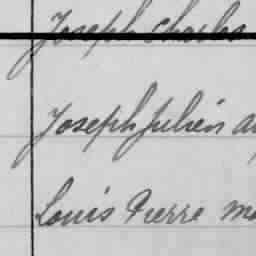 Joseph Charles
Joseph Julien
Louis Pierre